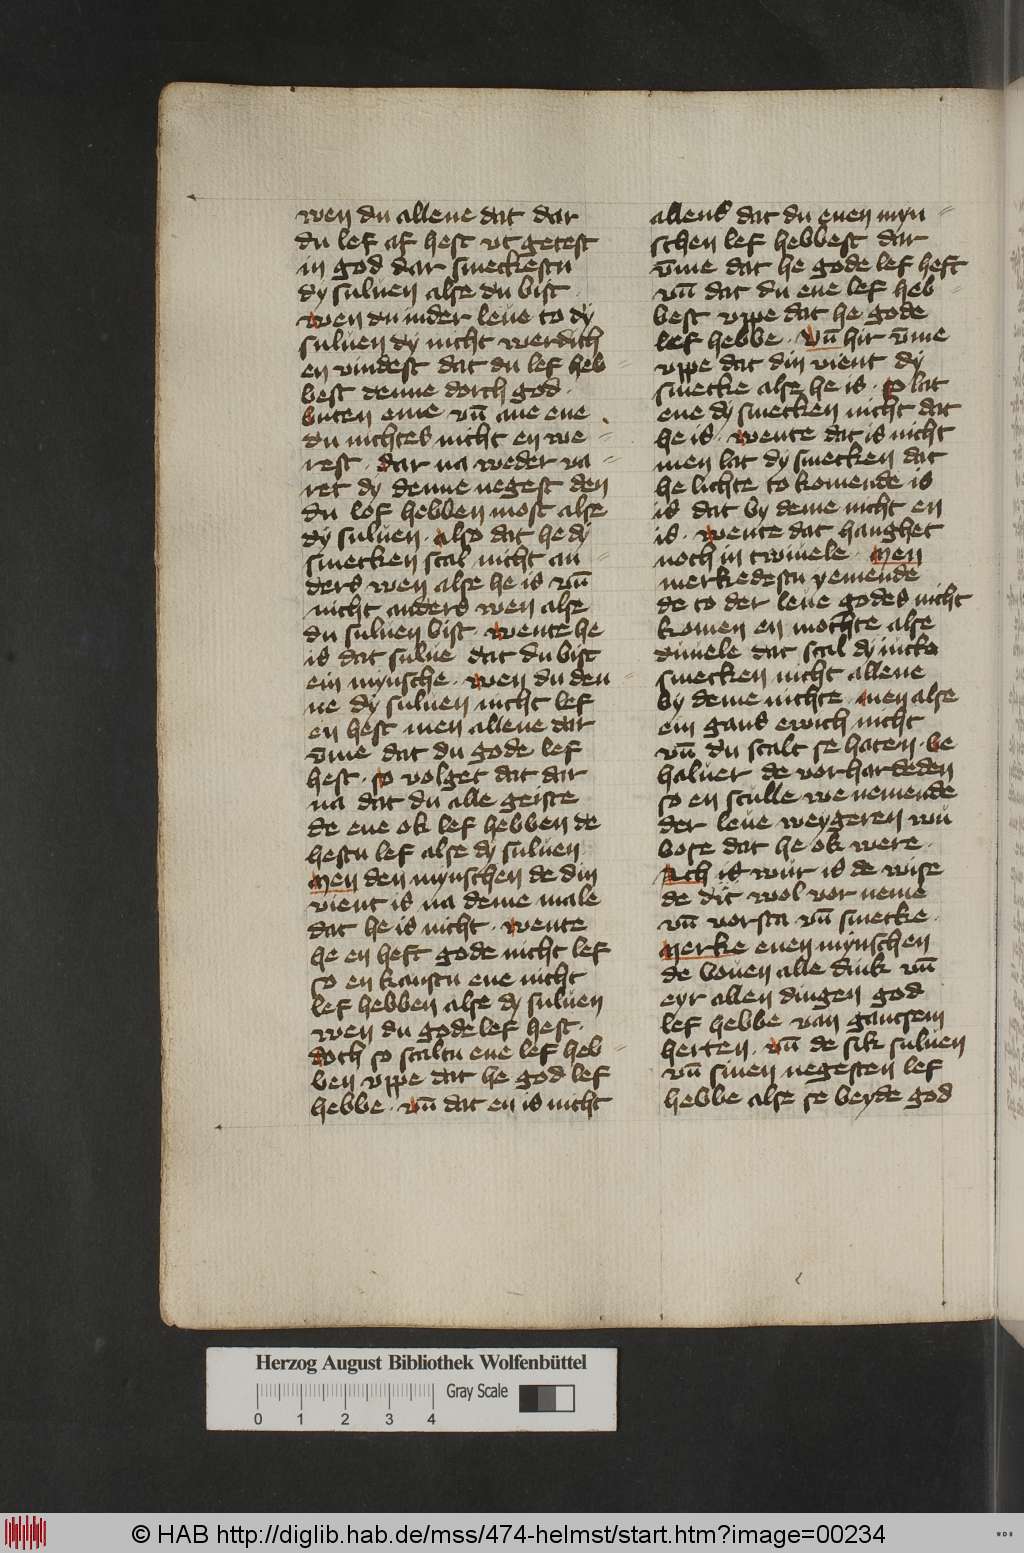 wen du allene dat dar
du lef af hest vt getest
in god dar smeckestu
dy suluen alse du bist
wen du in der leue to dy
suluen dy nicht werdich
en vindest dat du lef heb⸗
best denne dorch god ·
buten eme vn̄ ane ene
du nichtes nicht en we⸗
rest · dar na weder va⸗
ret dy denne negest den
du lof hebben most alse
dy suluen · also dat he dy
smecken scal nicht an⸗
ders wen alse he is vn̄
nicht anders wen alse
du suluen bist · wente he
is dat sulue dat du bist
ein mynsche · wen du den⸗
ne dy suluen nicht lef
en hest men allene dar
v̄me dat du gode lef
hest · so volget dat dar
na dat du alle geiste
de ene ok lef hebben de
hestu lef alse dy suluen
Men den mynschen de din
vient is na deme male
dat he is nicht · wente
he en heft gode nicht lef
so en kanstu ene nicht
lef hebben alse dy suluen
wen du gode lef hest ·
doch so scaltu ene lef heb⸗
ben vppe dat he god lef
hebbe · vn̄ dat en is nicht
allens dat du euen myn⸗
schen lef hebbest dar
v̄me dat he gode lef heft
vn̄ dat du ene lef heb⸗
best vppe dat he gode
lef hebbe · Vn̄ hir v̄me
vppe dat din vient dy
smecke alse he is · so lat
ene dy smecken nicht dat
he is · wente dat is nicht
men lat dy smecken dat
he lichte to komende is
is dat by deme nicht en
is · wente dat hanghet
noch in twiuele · Men
merkedestu yemende
de to der leue godes nicht
komen en mochte alse
duuele dat scal dy nicht
smecken nicht allene
by deme nichte men alse
ein gans ewich nicht
vn̄ du scalt se haten · be
haluer de vorhardeden
so en sculle we nemende
der leue weygeren wu
bose dat he ok were ·
Ach is wur is de wise
de dit wol vor neme
vn̄ vorsta vn̄ smecke ·
Merke euen mynschen
de bouen alle dink vn̄
eyr allen dingen god
lef hebbe van gantsem
herten · vn̄ de sik suluen
vn̄ sinen negesten lef
hebbe alse se beyde god
Herzog August Bibliothek Wolfenbüttel
Gray Scale
0 1 2 3 4
© HAB http://diglib.hab.de/mss/474-helmst/start.htm?image=00234